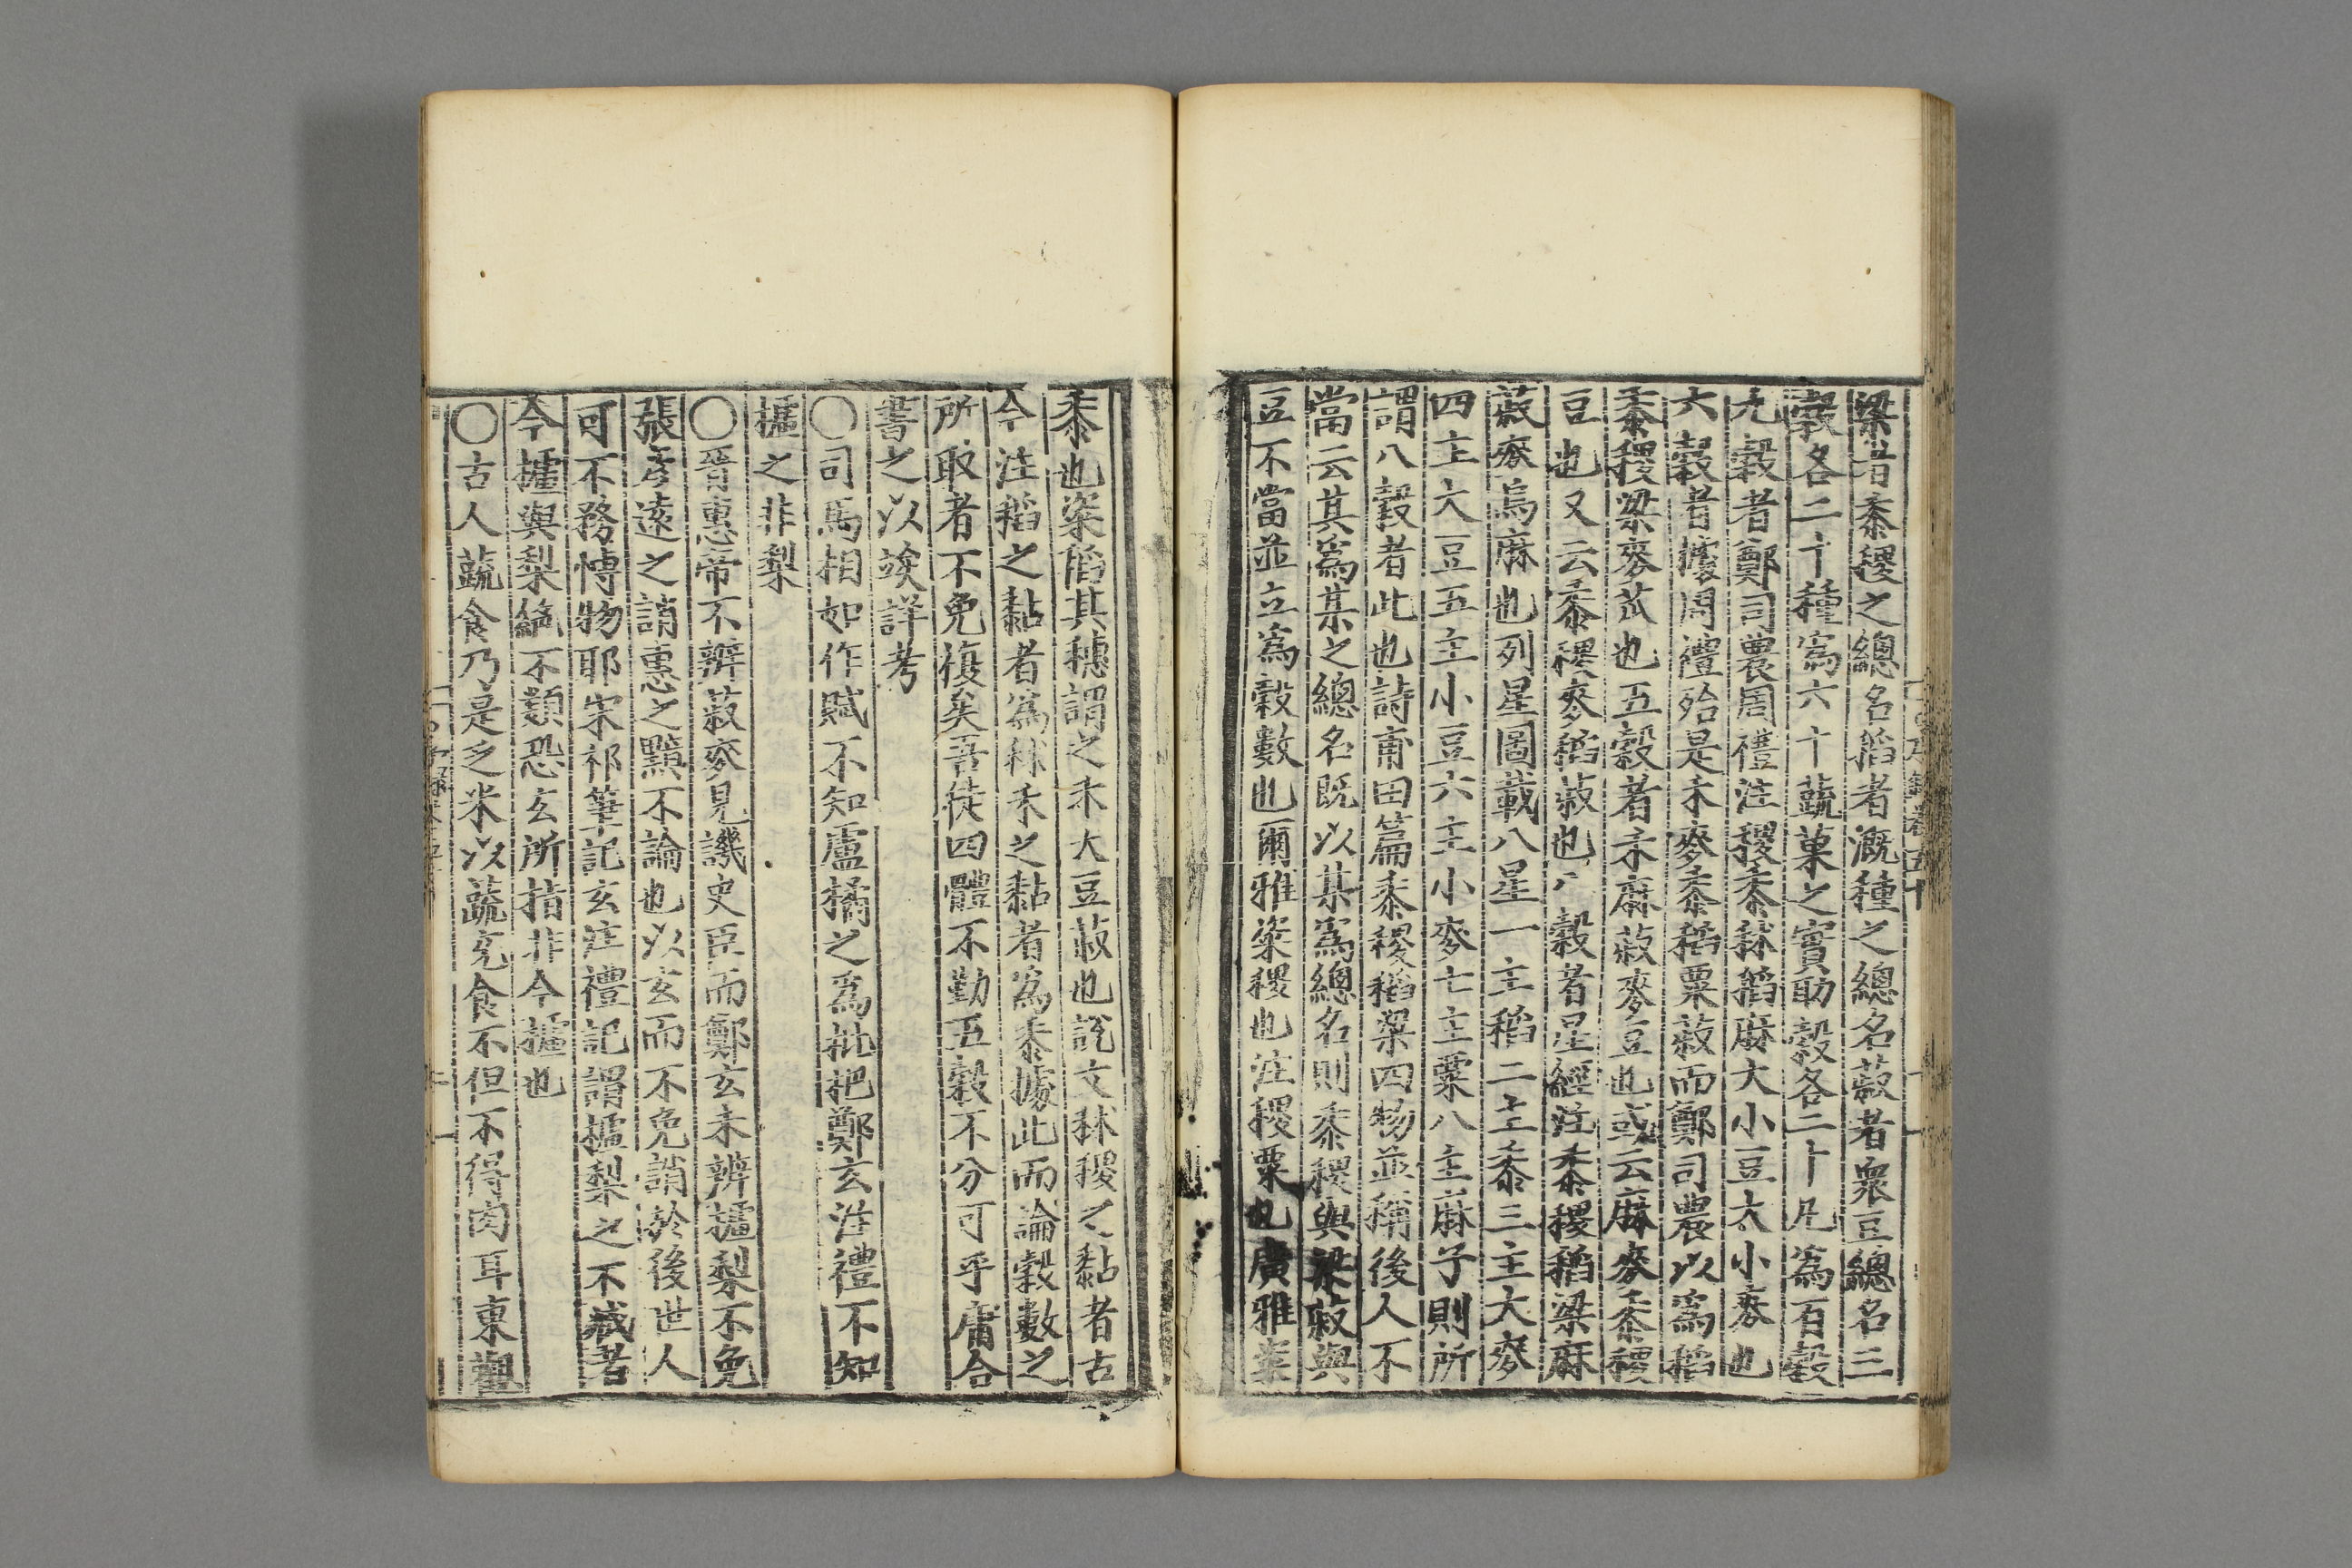 粱者黍稷之總名稻者溉種之總名菽者衆豆總名三
穀各二十種爲六十蔬菓之實助穀各二十凡爲百穀
九穀者鄭司農周禮注稷黍秫稻麻大小豆大小麥也
六穀者據周禮殆是禾麥黍稻粟菽而鄭司農以爲稻
黍稷粱麥苽也五穀者禾麻菽麥豆也或云麻麥黍稷
豆也又云黍稷麥稻菽也八穀者星經注黍稷稻粱麻
菽麥烏麻也列星圖載八星一主稻二主黍三主大麥
四主大豆五主小豆六主小麥七主粟八主麻子則所
謂八穀者此也詩甫田篇黍稷稻粱四物並稱後人不
當云其爲某之總名既以某爲總名則黍稷與粱菽與
豆不當並立爲穀數也爾雅粢稷也注稷粟也廣雅粢
黍也粢稻其穗謂之禾大豆菽也說文秫稷之黏者古
今注稻之黏者爲秫禾之黏者爲黍據此而論穀數之
所取者不免複矣吾徒四體不勤五穀不分可乎庸合
書之以竢詳考
○司馬相如作賦不知盧橘之爲枇把鄭玄注禮不知
樝之非梨
○晉惠帝不辨菽麥見譏史臣而鄭玄未辨樝梨不免
張彦遠之誚惠之黯不論也以玄而不免誚於後世人
可不務慱物耶宋祁筆記玄注禮記謂樝梨之不臧者
今樝與梨絶不類恐玄所指非今樝也
○古人蔬食乃是乏米以蔬充食不但不得肉耳東觀